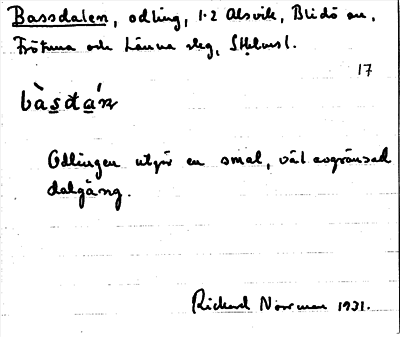 Bassdalen, odling, 1:2 Alsvik, Blidö sn,
Frötuna och Länna slg, Sthlms l.
17
bàsdáṇ
Odlingen utgör en smal, väl avgränsad
dalgång.
Rickard Norrman 1931.